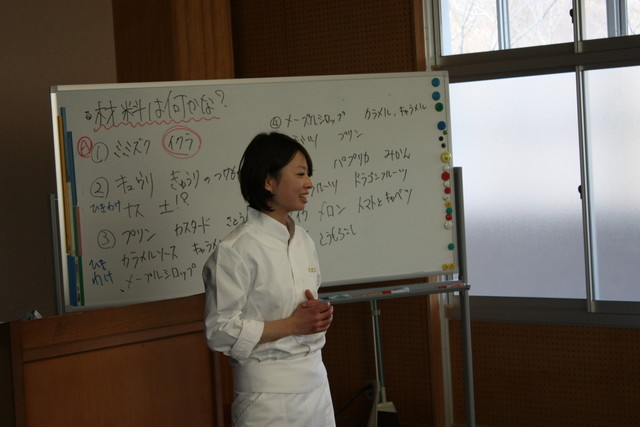 材料は何かな?
A
① ミミズク イクラ
② キュウリ きゅうりのつけもの
ひきわけ
ナス 土!?
③ プリン カスタード
カラメルソース キャラメル
ひきわけ
メープルシロップ
④ メープルシロップ カラメル、キャラメル
プリン
パプリカ みかん
フルーツ ドラゴンフルーツ
メロン トマトとキャベツ
とうもろこし